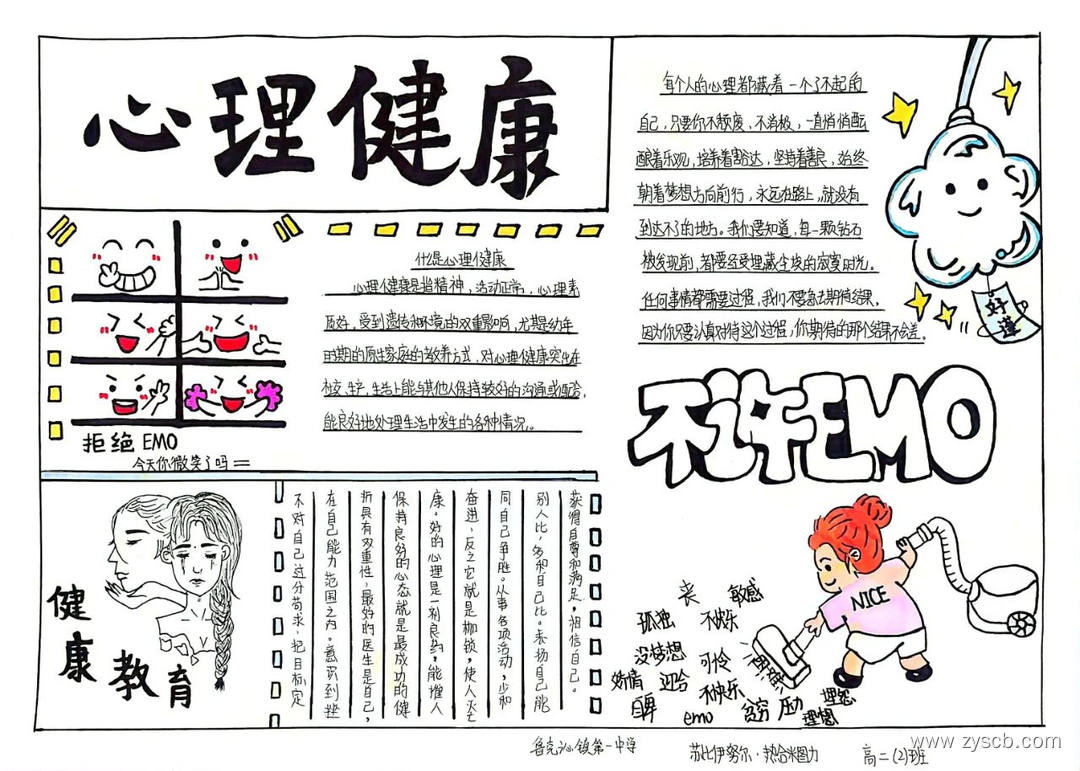 心理健康
拒绝EMO
今天你微笑了吗
什么是心理健康
心理健康是指精神,活动正常,心理素
质好,受到遗传和环境的双重影响,尤期是幼年
时期的原生家庭的教养方式,对心理健康突出在
社交、生产、生活上能与其他人保持较好的沟通或配合,
能良好地处理生活中发生的各种情况。
每个人的心理都藏着一个了不起的
自己,只要你不颓废,不消极,一直悄悄酝
酿着乐观,培养着豁达,坚持着善良,始终
朝着梦想方向前行,永远在路上,就没有
到达不了的地方。我们要知道,每一颗钻石
被发现前,都要经受埋藏尘埃的寂寞时光。
任何事情都需要过程,我们不要急去期待结果,
因为你只要认真对待这个过程,你期待的那个结果不会差。
好运
不许EMO
NICE
丧
敏感
孤独
不快乐
没梦想
可怜
矫情
迎合
不快乐
自卑
emo
贫穷
压力
埋怨
健康教育
不对自己过分苛求,把目标定
在自己能力范围之内。意识到挫
折具有双重性,最好的医生是自己,
保持良好的心态就是最成功的健
康。好的心理是一剂良药,能催人
奋进,反之它就是枷锁,使人灭亡
同自己争胜。从事各项活动,少和
别人比,多和自己比。表扬自己能
获得自尊和满足,相信自己。
鲁克沁镇第一中学
苏比伊努尔·热合米图力
高二(2)班
www.zyscb.com